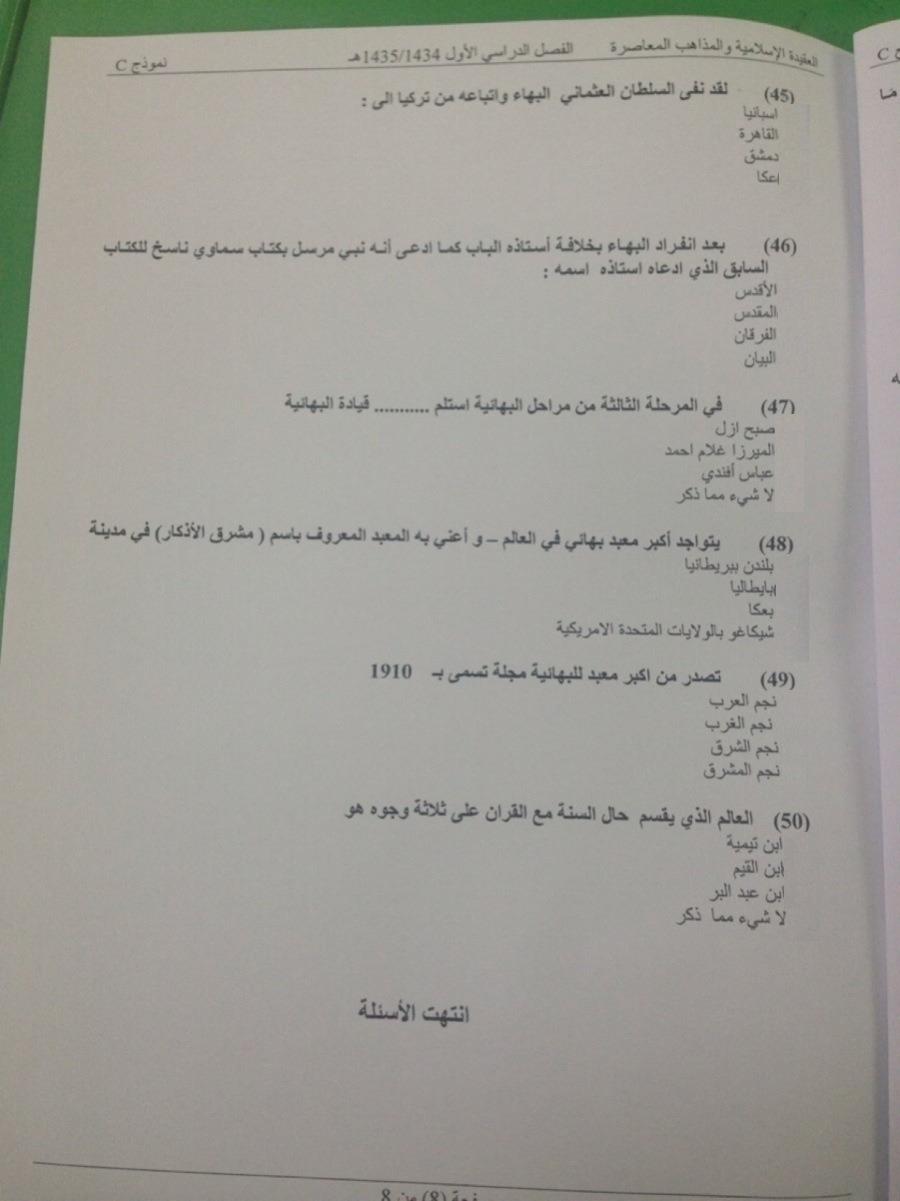 العقيدة الإسلامية والمذاهب المعاصرة الفصل الدراسي الأول 1435/1434هـ نموذج C
(45) لقد نفى السلطان العثماني البهاء واتباعه من تركيا الى :
اسبانيا
القاهرة
دمشق
عكا
(46) بعد انفراد البهاء بخلافة أستاذه الباب كما ادعى أنه نبي مرسل بكتاب سماوي ناسخ للكتاب
السابق الذي ادعاه استاذه اسمه :
الأقدس
المقدس
الفرقان
البيان
(47) في المرحلة الثالثة من مراحل البهائية استلم ........... قيادة البهائية
صبح ازل
الميرزا غلام احمد
عباس أفندي
لا شيء مما ذكر
(48) يتواجد أكبر معبد بهائي في العالم – و أعني به المعبد المعروف باسم ( مشرق الأذكار) في مدينة
بلندن ببريطانيا
بايطاليا
بعكا
شيكاغو بالولايات المتحدة الامريكية
(49) تصدر من اكبر معبد للبهائية مجلة تسمى بـ 1910
نجم العرب
نجم الغرب
نجم الشرق
نجم المشرق
(50) العالم الذي يقسم حال السنة مع القران على ثلاثة وجوه هو
ابن تيمية
ابن القيم
ابن عبد البر
لا شيء مما ذكر
انتهت الأسئلة
صفحة (8) من 8
C
ما